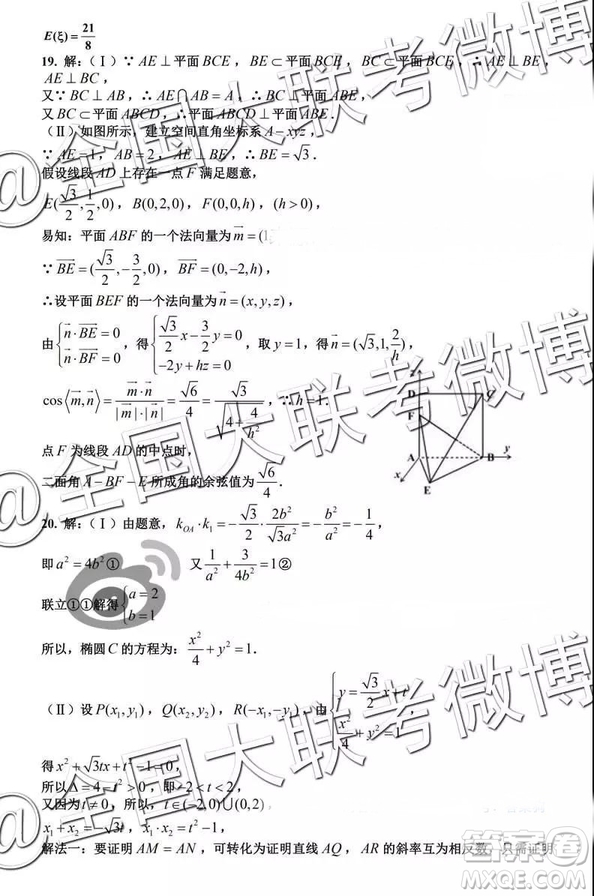 E(ξ)=21/8
19. 解：(Ⅰ)∵ AE⊥平面BCE，BE⊂平面BCE，BC⊂平面BCE，∴AE⊥BE，
AE⊥BC，
又∵ BC⊥AB，∴AE∩AB=A，∴BC⊥平面ABE，
又BC⊂平面ABCD，∴平面ABCD⊥平面ABE．
(Ⅱ)如图所示，建立空间直角坐标系A-xyz，
∵ AE=1，AB=2，AE⊥BE，∴BE=√3．
假设线段AD上存在一点F满足题意，
E(√3/2,1/2,0)，B(0,2,0)，F(0,0,h)，(h>0)，
易知：平面ABF的一个法向量为m=(1,
∵BE=(√3/2,-3/2,0)，BF=(0,-2,h)，
∴设平面BEF的一个法向量为n=(x,y,z)，
由{n·BE=0, n·BF=0，得{√3/2 x-3/2 y=0, -2y+hz=0，取y=1，得n=(√3,1,2/h)，
cos⟨m,n⟩=m·n/(|m|·|n|)=√6/4=√3/√(4+4/h²)，∴h=1．
点F为线段AD的中点时，
二面角A-BF-E所成角的余弦值为√6/4．
z
D
C
F
A
B
y
x
E
20. 解：(Ⅰ)由题意，k_OA·k₁=-√3/2·2b²/(√3a²)=-b²/a²=-1/4，
即a²=4b²① 又1/a²+3/(4b²)=1②
联立①①解得{a=2, b=1
所以，椭圆C的方程为：x²/4+y²=1．
(Ⅱ)设P(x₁,y₁)，Q(x₂,y₂)，R(-x₁,-y₁)，由{y=√3/2 x+t, x²/4+y²=1，
得x²+√3tx+t²-1=0
所以Δ=4-t²>0，即-2<t<2，
又因为t≠0，所以，t∈(-2,0)∪(0,2)，
x₁+x₂=-√3t，x₁·x₂=t²-1，
解法一：要证明AM=AN，可转化为证明直线AQ，AR的斜率互为相反数，只需证明
@全国大联考微博
@全国大联考微博
@全国大联考微博
答案圈